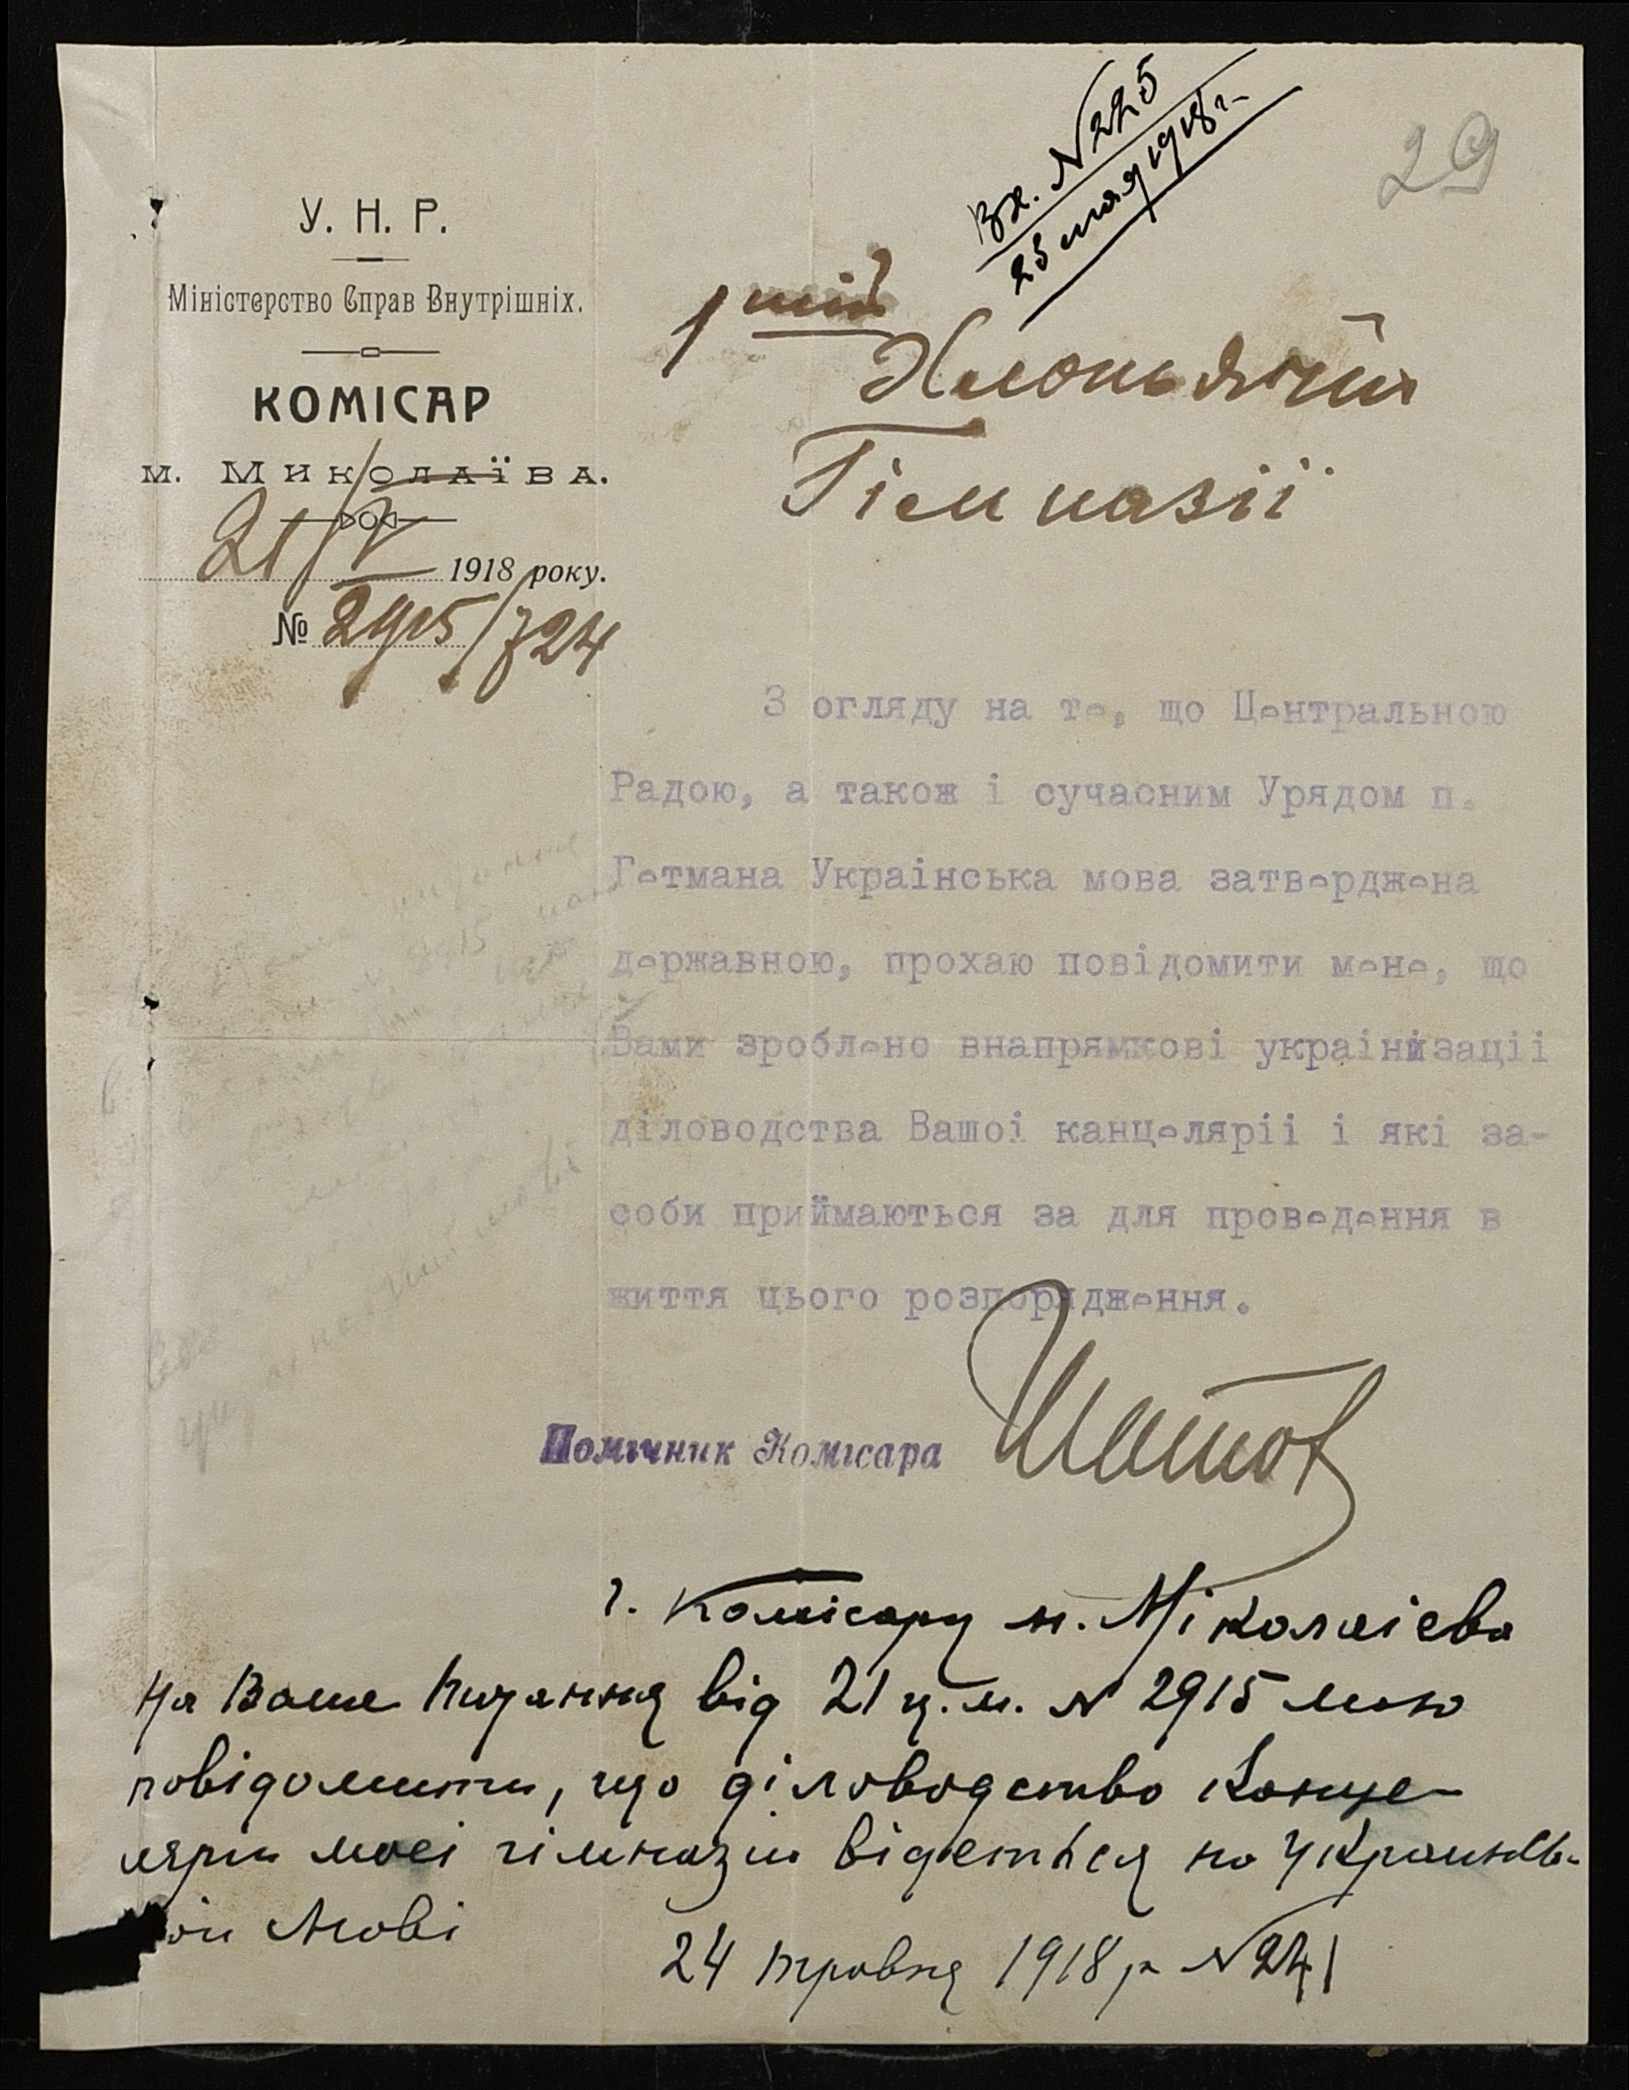 Вх. N 225
23 мая 1918 г.
29
У. Н. Р.
Міністерство Справ Внутрішніх.
КОМІСАР
м. Миколаїва.
21/V 1918 року.
№ 2915/724
1шій
Хлопьячій
Гімназіі
З огляду на те, що Центральною
Радою, а також і сучасним Урядом п.
Гетмана Украінська мова затверджена
державною, прохаю повідомити мене, що
Вами зроблено внапрямкові украінізаціі
діловодства Вашоі канцеляріі і які за-
соби приймаються за для проведення в
життя цього розпорядження.
Помічник Комісара
г. Комісару м. Міколаієва
На Ваше питання від 21 ц.м. N 2915 маю
повідомити, що діловодство Канце-
лярии моеі гімназии відеться на Украинсь-
кои мові
24 травня 1918 р N 241